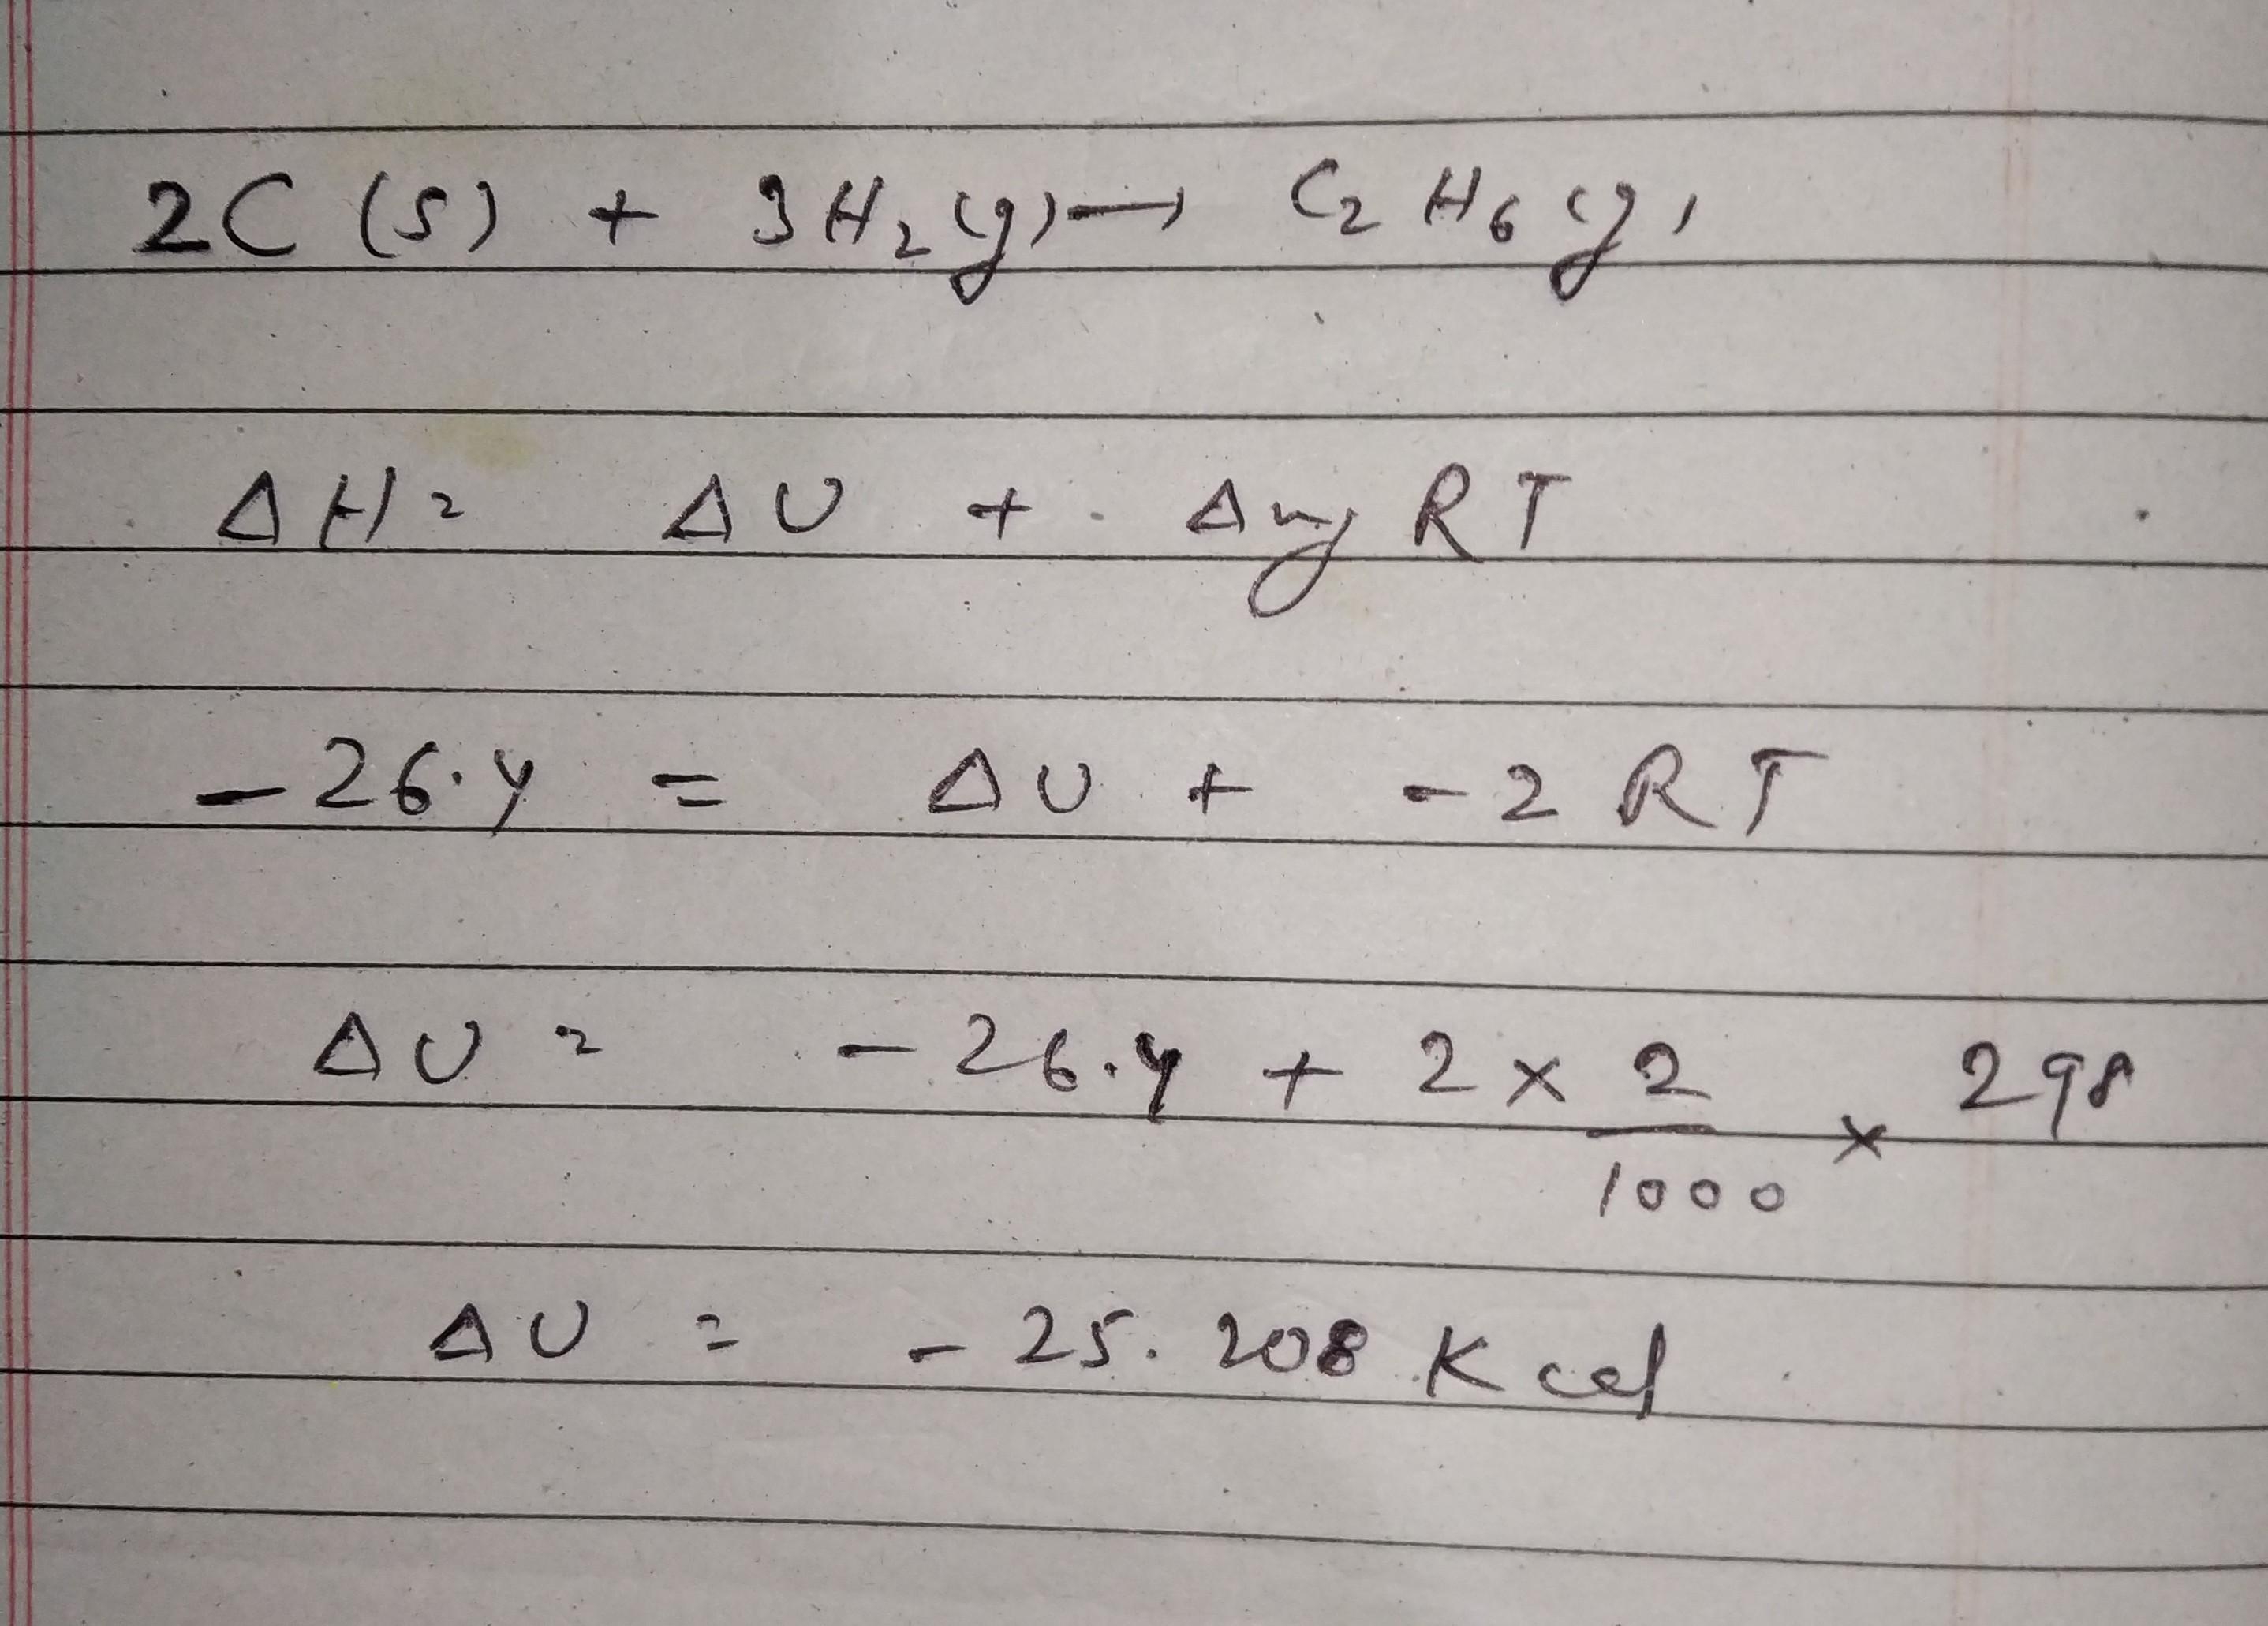 2C (s) + 3H₂(g) → C₂H₆(g)
ΔH = ΔU + Δng RT
-26.4 = ΔU + -2 RT
ΔU = -26.4 + 2 × 2/1000 × 298
ΔU = -25.208 Kcal